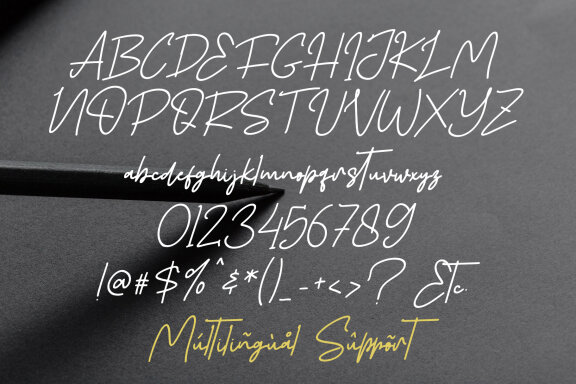 ABCDEFGHIJKLM
NOPQRSTUVWXYZ
abcdefghijklmnopqrstuvwxyz
0123456789
!@#$%^&*()_-+<>? Etc.
Múltiliñgùål Sûppõrt